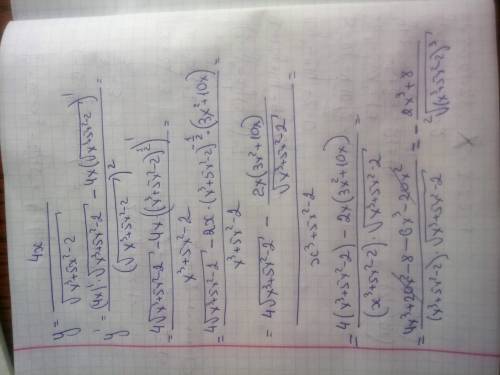 y = 4x / √(x³+5x²-2)
y' = ((4x)'·√(x³+5x²-2) - 4x(√(x³+5x²-2))') / (√(x³+5x²-2))² =
= (4√(x³+5x²-2) - 4x((x³+5x²-2)^½)') / (x³+5x²-2) =
= (4√(x³+5x²-2) - 2x·(x³+5x²-2)^-½·(3x²+10x)) / (x³+5x²-2) =
= (4√(x³+5x²-2) - 2x(3x²+10x) / √(x³+5x²-2)) / (x³+5x²-2) =
= (4(x³+5x²-2) - 2x(3x²+10x)) / ((x³+5x²-2)·√(x³+5x²-2)) =
= (4x³+20x²-8-6x³-20x²) / ((x³+5x²-2)·√(x³+5x²-2)) = - (2x³+8) / ²√(x³+5x²-2)³